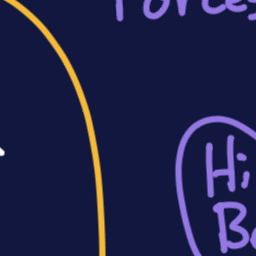 Forces
Hi,
Bo